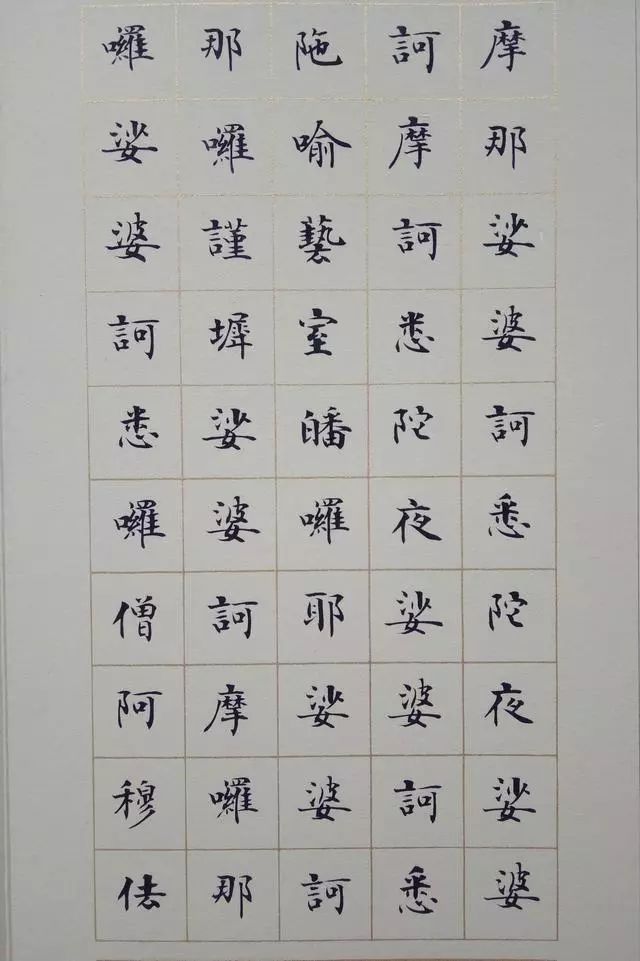 摩那娑婆訶悉陀夜娑婆
訶摩訶悉陀夜娑婆訶悉
陁喻藝室皤囉耶娑婆訶
那囉謹墀娑婆訶摩囉那
囉娑婆訶悉囉僧阿穆佉